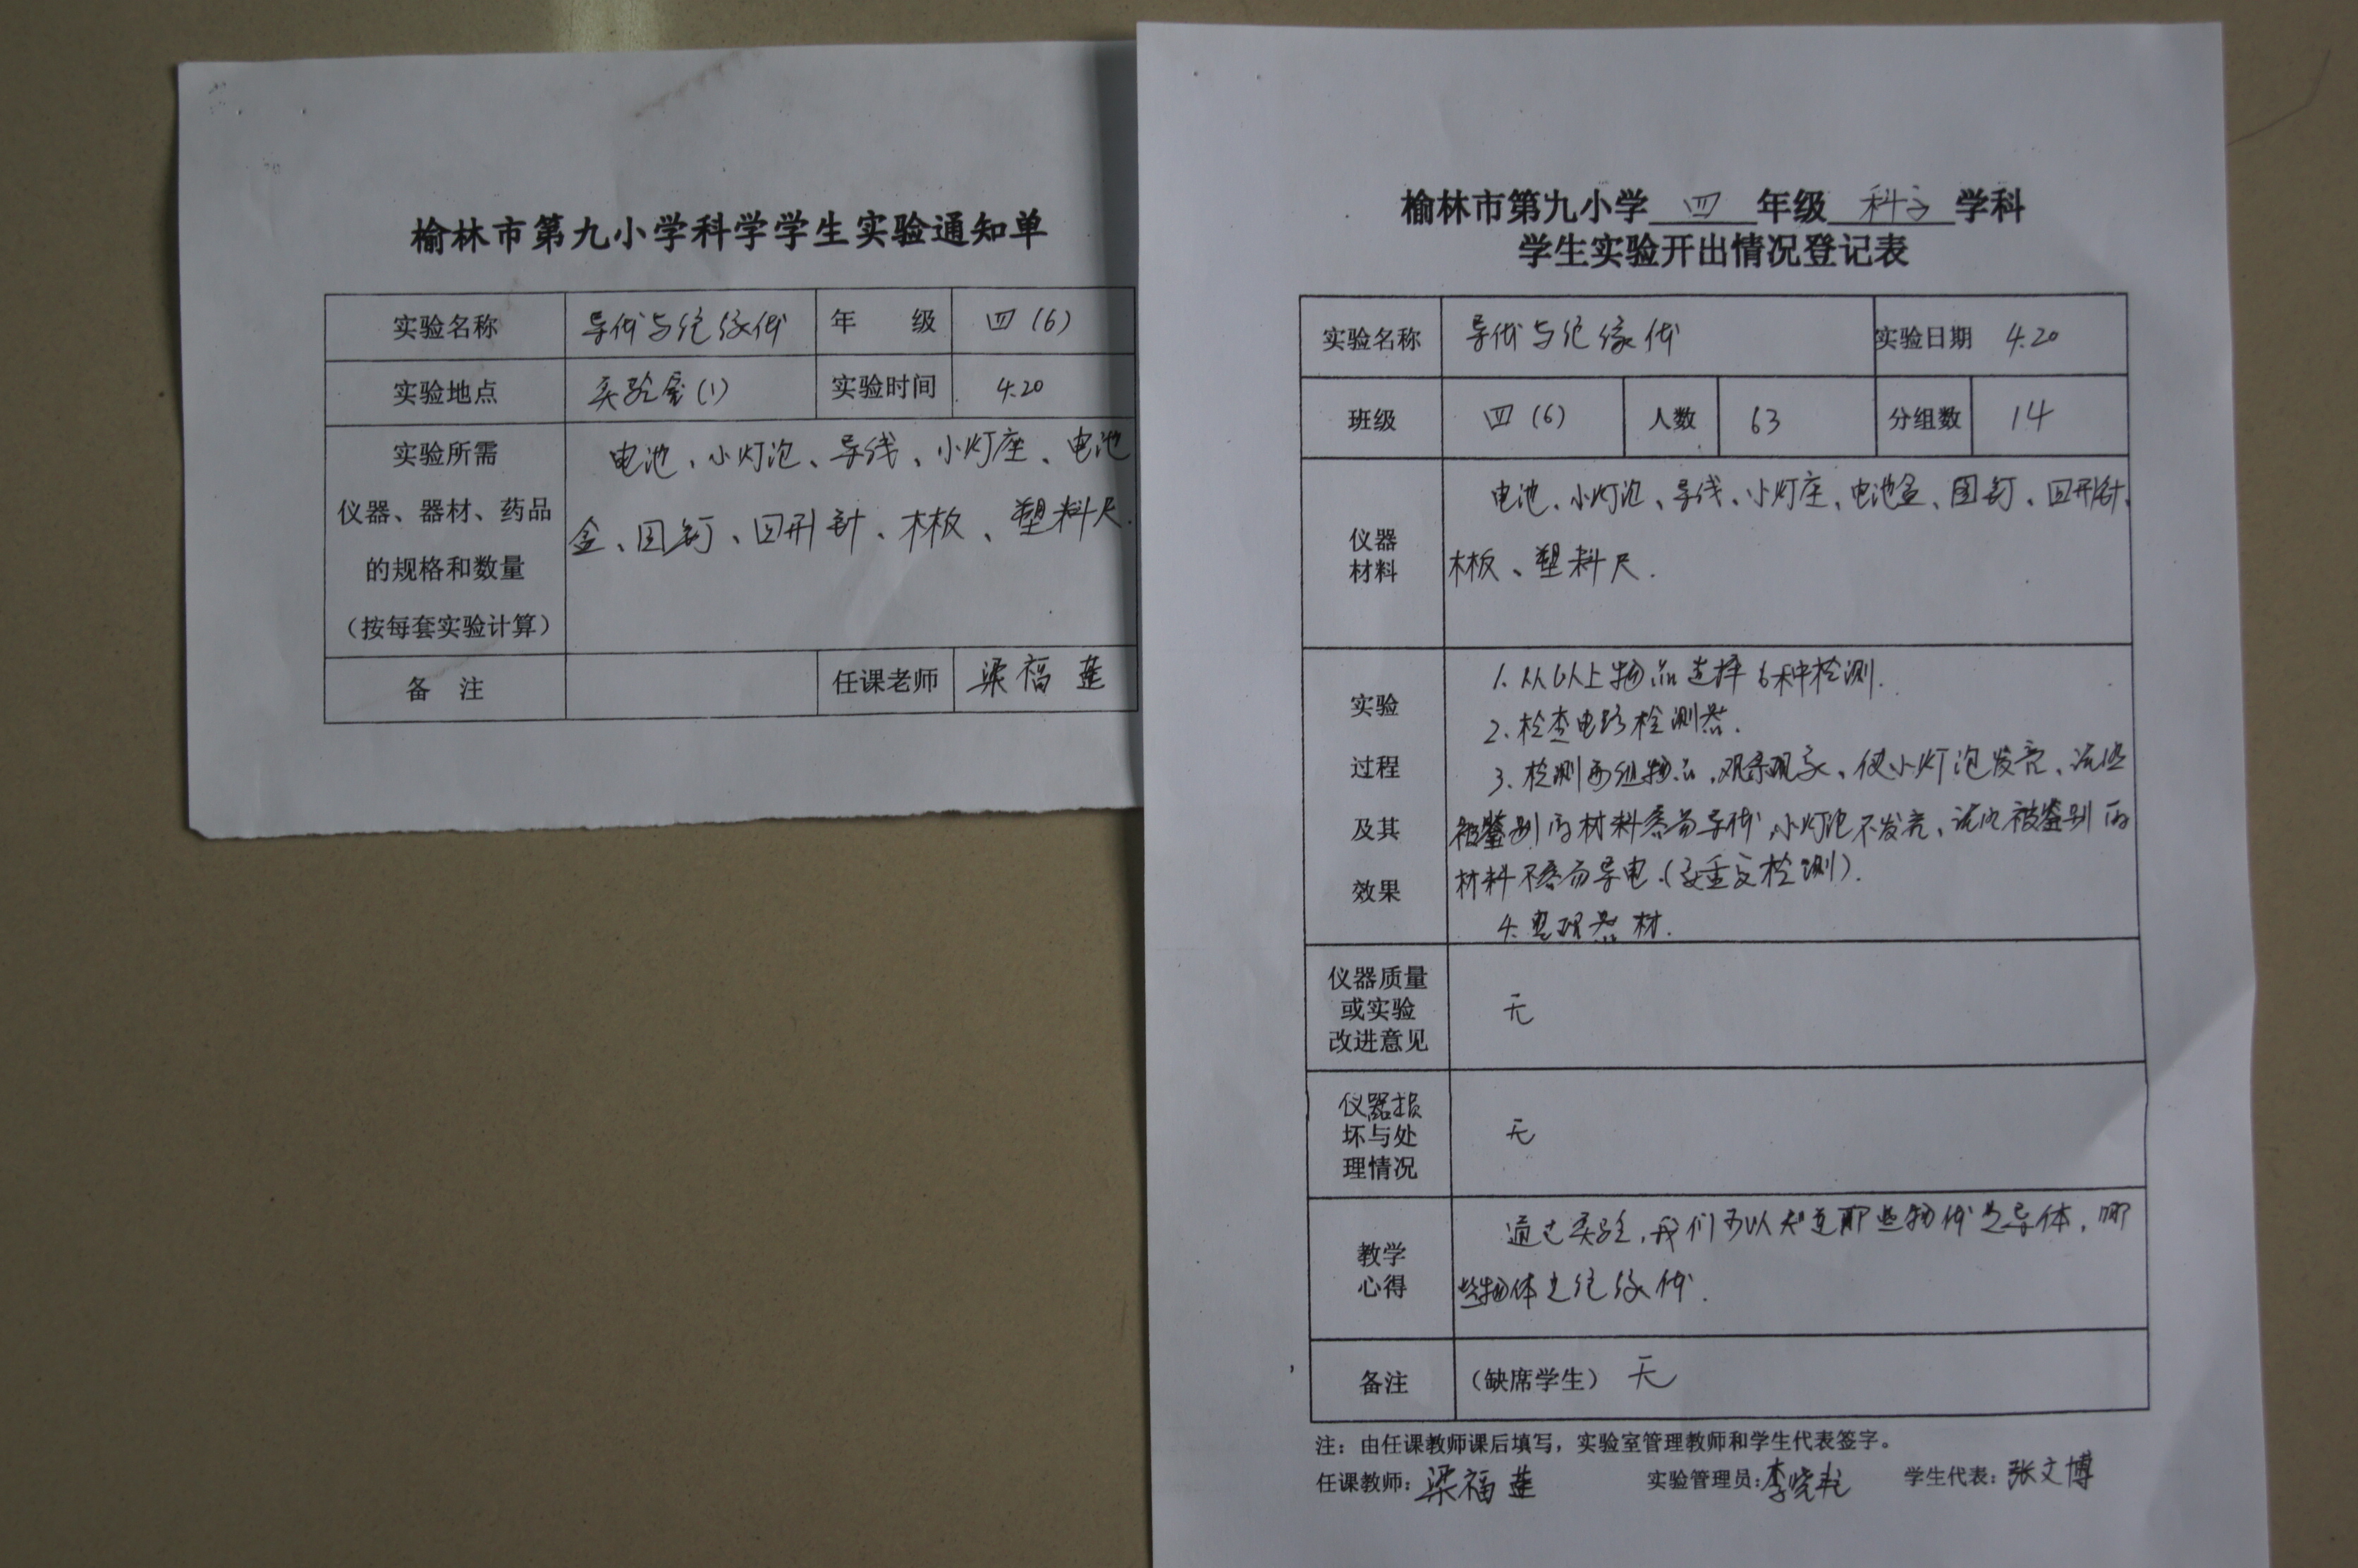 榆林市第九小学科学学生实验通知单
实验名称 导体与绝缘体 年 级 四(6)
实验地点 实验室(1) 实验时间 4.20
实验所需
仪器、器材、药品
的规格和数量
(按每套实验计算)
电池、小灯泡、导线、小灯座、电池
盒、图钉、回形针、木板、塑料尺.
备 注 任课老师 梁福莲
榆林市第九小学 四 年级 科学 学科
学生实验开出情况登记表
实验名称 导体与绝缘体 实验日期 4.20
班级 四(6) 人数 63 分组数 14
仪器
材料
电池、小灯泡、导线、小灯座、电池盒、图钉、回形针、
木板、塑料尺.
实验
过程
及其
效果
1. 从以上物品选择6种检测.
2. 检查电路检测器.
3. 检测两组物品,观察现象、使小灯泡发亮、说明
被鉴别的材料容易导体,小灯泡不发亮、说明被鉴别的
材料不容易导电.(要重复检测).
4. 整理器材.
仪器质量
或实验
改进意见
无
仪器损
坏与处
理情况
无
教学
心得
通过实验,我们可以知道那些物体是导体,哪
些物体是绝缘体.
备注 (缺席学生) 无
注:由任课教师课后填写,实验室管理教师和学生代表签字。
任课教师:梁福莲 实验管理员:李晓 学生代表:张文博